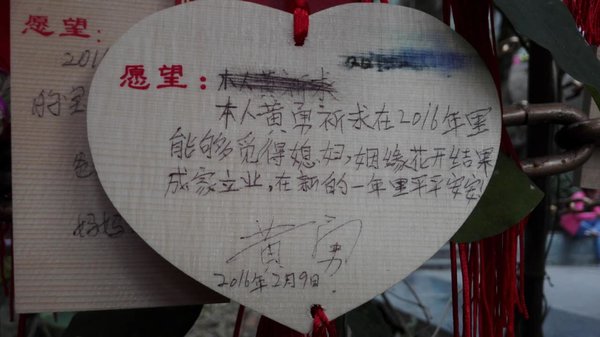 愿望：
2016
的
好妈
愿望：
本人黄勇祈求在2016年里
能够觅得媳妇，姻缘花开结果
成家立业，在新的一年里平平安安
黄勇
2016年2月9日